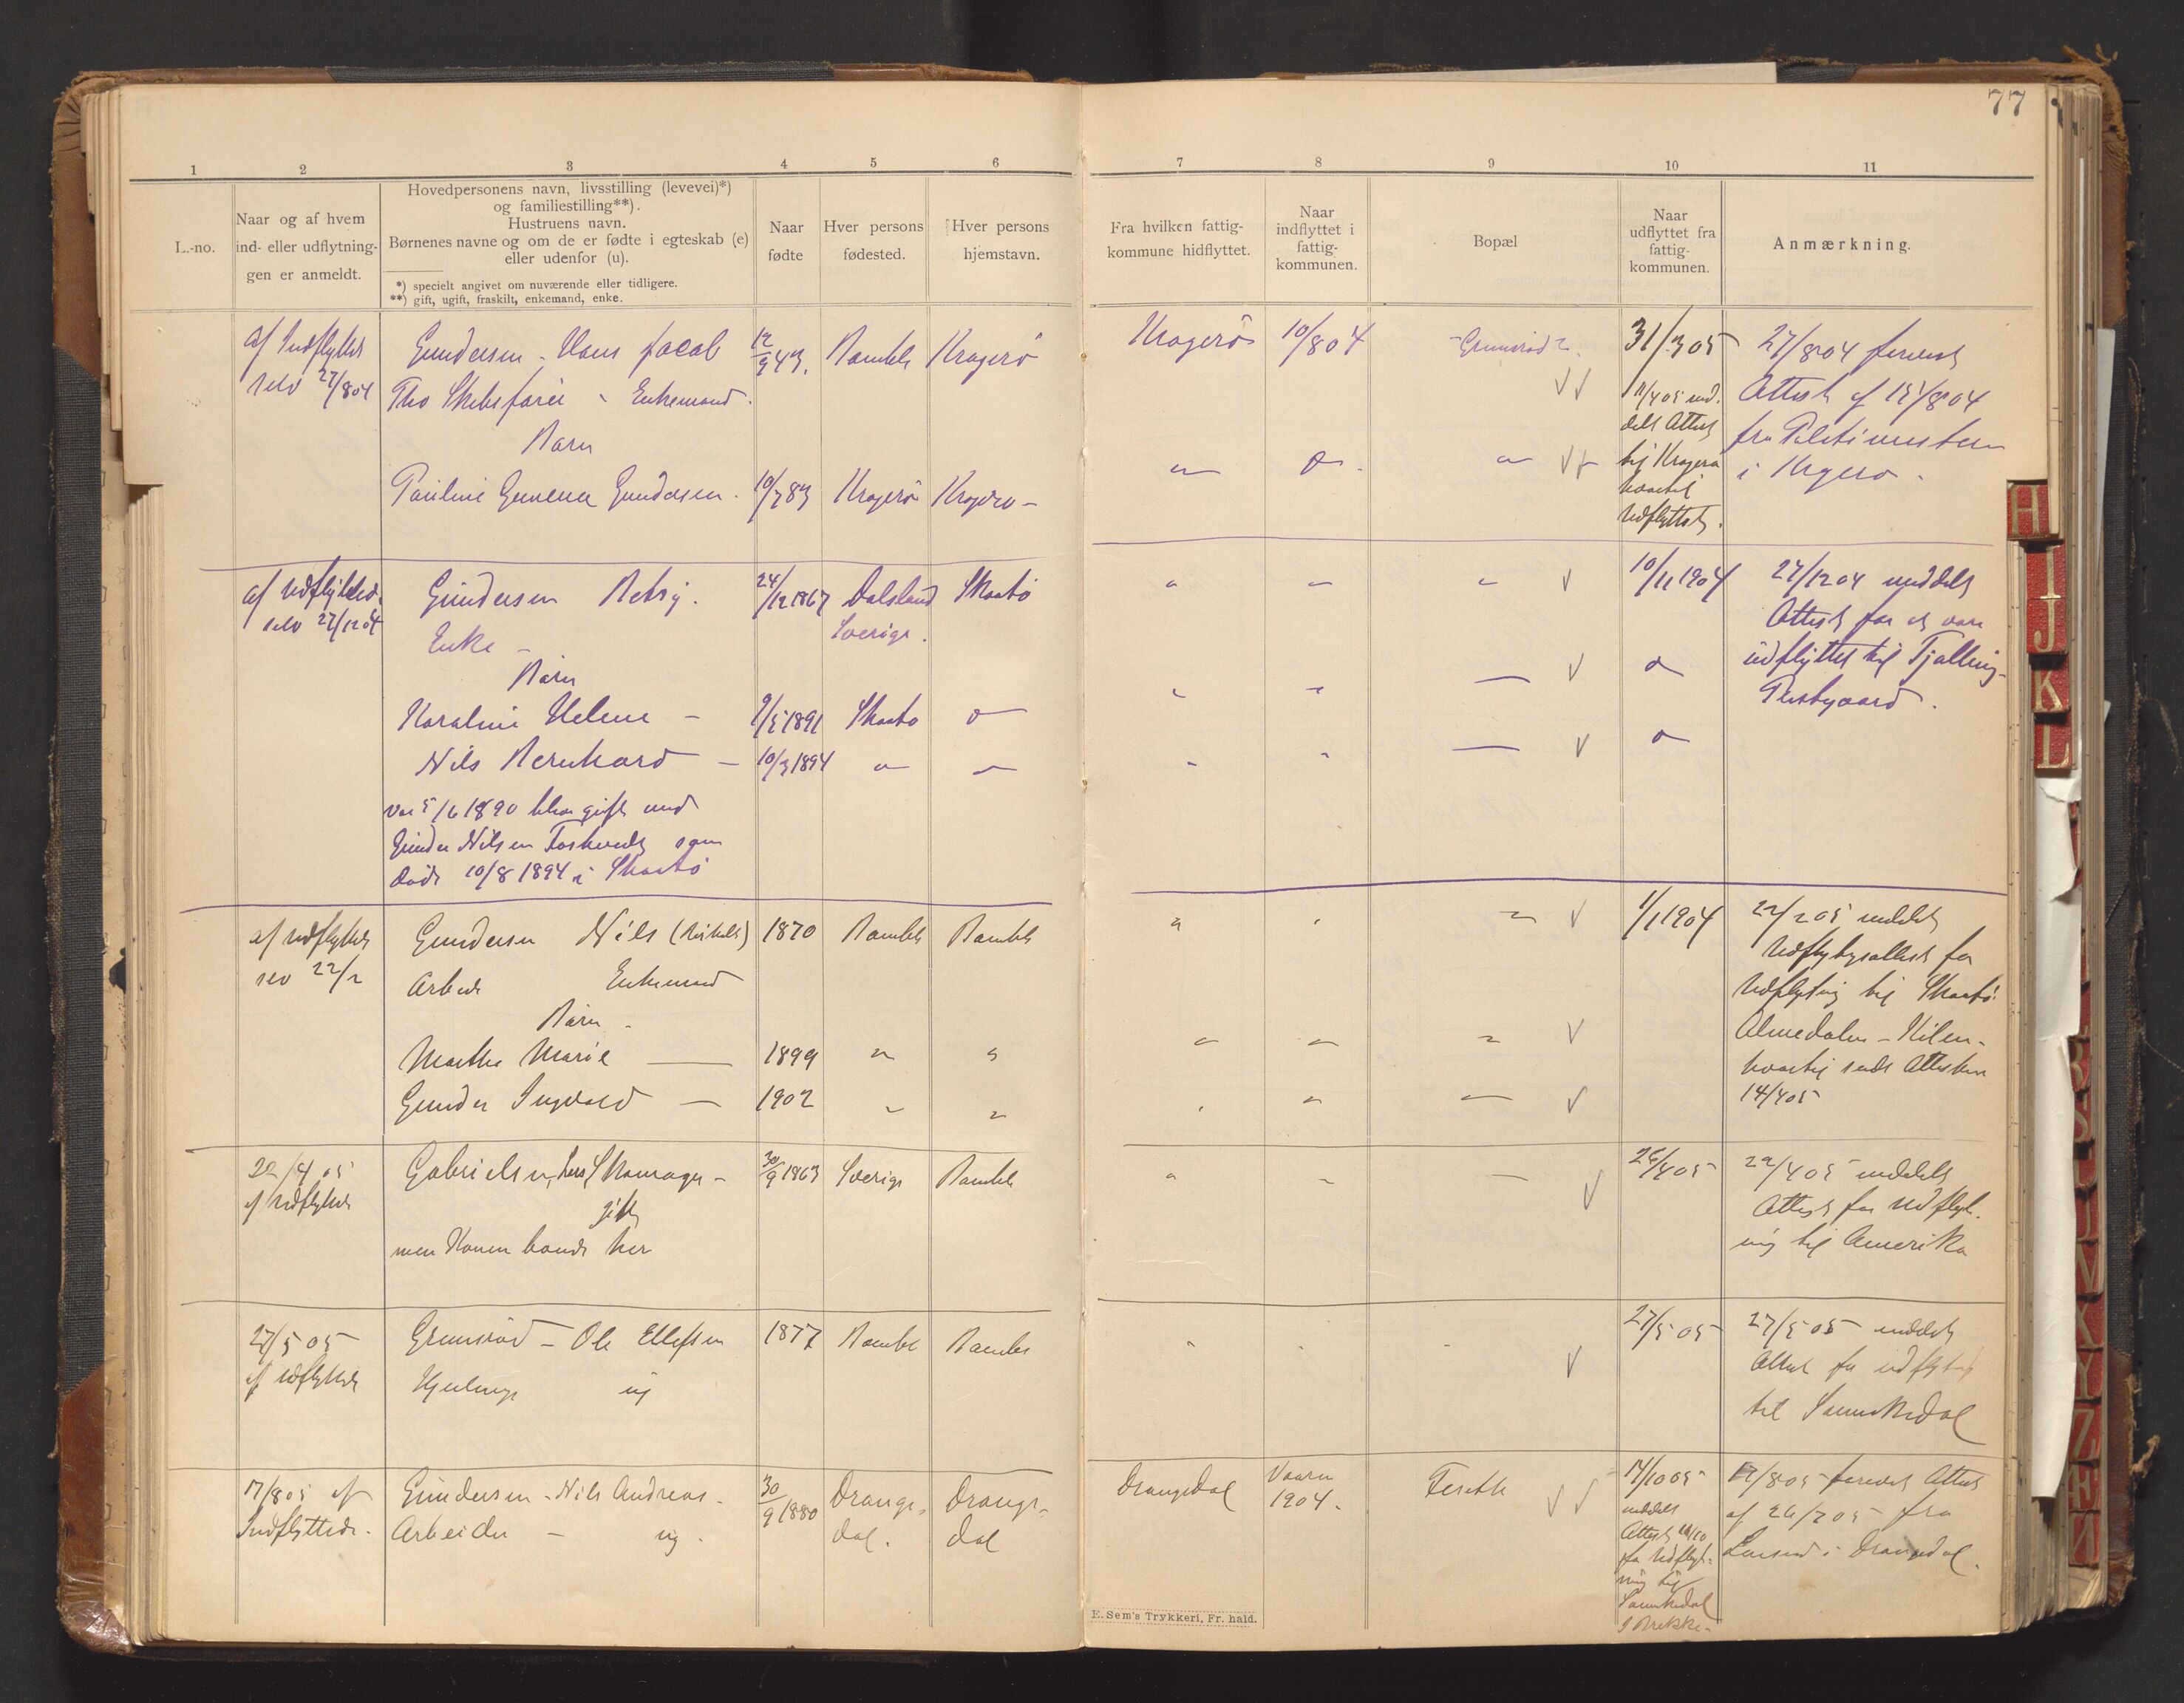 77
1 2 3 4 5 6 7 8 9 10 11
L.-no.
Naar og af hvem
ind- eller udflytnin-
gen er anmeldt.
Hovedpersonens navn, livsstilling (levevei)*)
og familiestilling**).
Hustruens navn.
Børnenes navne og om de er fødte i egteskab (e)
eller udenfor (u).
*) specielt angivet om nuværende eller tidligere.
**) gift, ugift, fraskilt, enkemand, enke.
Naar
fødte
Hver persons
fødested.
Hver persons
hjemstavn.
Fra hvilken fattig-
kommune hidflyttet.
Naar
indflyttet i
fattig-
kommunen.
Bopæl
Naar
udflyttet fra
fattig-
kommunen.
Anmærkning.
af Indflytted
selv 27/8 04
Gundersen - Hans Jacob
Enkemand.
Barn
Pauline Gunena Gundersen.
12/9 43.
Bamble
Kragerø
10/7 83
Kragerø
Kragero -
Kragerø
10/8 04
Grumrød
31/3 05
11/4 05 med-
delt Attest
til Kragerø
hvortil
Udflyttet.
27/8 04 forevist
Attest af 15/8 04
fra Politimesteren
i Kragero.
af Udflyttede
selv 27/12 04
Gundersen Betsy.
Enke -
Børn
Karoline Helene -
Nils Bernhard -
var 5/6 1890 bleven gift med
Gunder Nilsen som
døde 10/8 1894 i Skaatø
24/12 1867
Dalsland
Sverige.
Skaatø
9/5 1891
Skaatø
10/3 1894
10/11 1904
27/12 04 meddelt
Attest for at være
udflyttet til Tjølling
Prestegaard.
af Udflyttede
selv 22/2
Gundersen Nils
Arbeid Enkemand
Børn -
Marthe Marie
Gunder Ingvald -
1870
Bamble
Bamble
1899
1902
1/1 1904
22/2 05 meddelt
Udflytningsattest for
Udflytning til Skaatø
Almedalen - Kilen -
hvortil sendt Attesten
14/4 05
22/4 05
af Udflyttede
Gabrielsen, Lars, Skomager -
gift
men Konen boende her
30/9 1863
Sverige
Bamble
26/4 05
22/4 05 meddelt
Attest for Udflyt-
ning til Amerika
27/5 05
af Udflyttede
Grumrød - Ole Ellefsen
ug
1877
Bamble
Bamble
27/5 05
27/5 05 meddelt
Attest for udflytning
til Sannikedal
17/8 05 af
Indflyttede.
Gundersen - Nils Andreas -
Arbeider - ug.
30/9 1880
Drange-
dal.
Drange-
dal
Drangedal
Vaaren
1904.
Feseth
14/10 05
meddelt
Attest 14/10
for Udflyt-
ning til
Sannikedal
i Brekke -
17/8 05 forevist Attest
af 26/7 05 fra
Lensmd i Drangedal.
E. Sem's Trykkeri, Fr. hald.
H
I
J
K
L